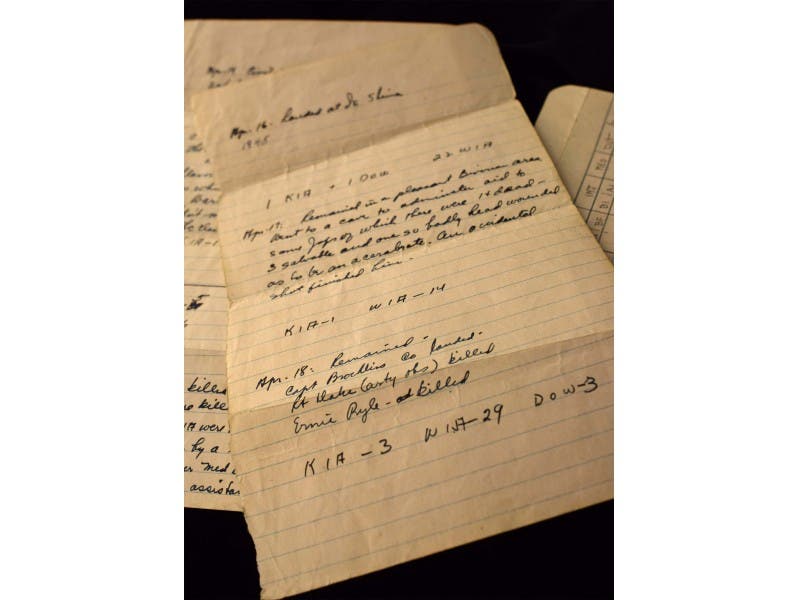 Apr. 16. Landed at Ie Shima
1945
1 KIA + 1 DOW 22 WIA
Apr. 17: Remained in a pleasant Bivouac area
Went to a cave to administer aid to
some Japs of which there were 14 dead -
3 salvable and one so badly head wounded
as to be an acerebrate. An accidental
shot finished him.
KIA-1 WIA-14
Apr. 18: Remained -
Capt Co landed -
Lt Blake (arty obs) killed
Ernie Pyle - killed
KIA -3 WIA-29 DOW-3
killed
kille
WIA were
by a
med
assista